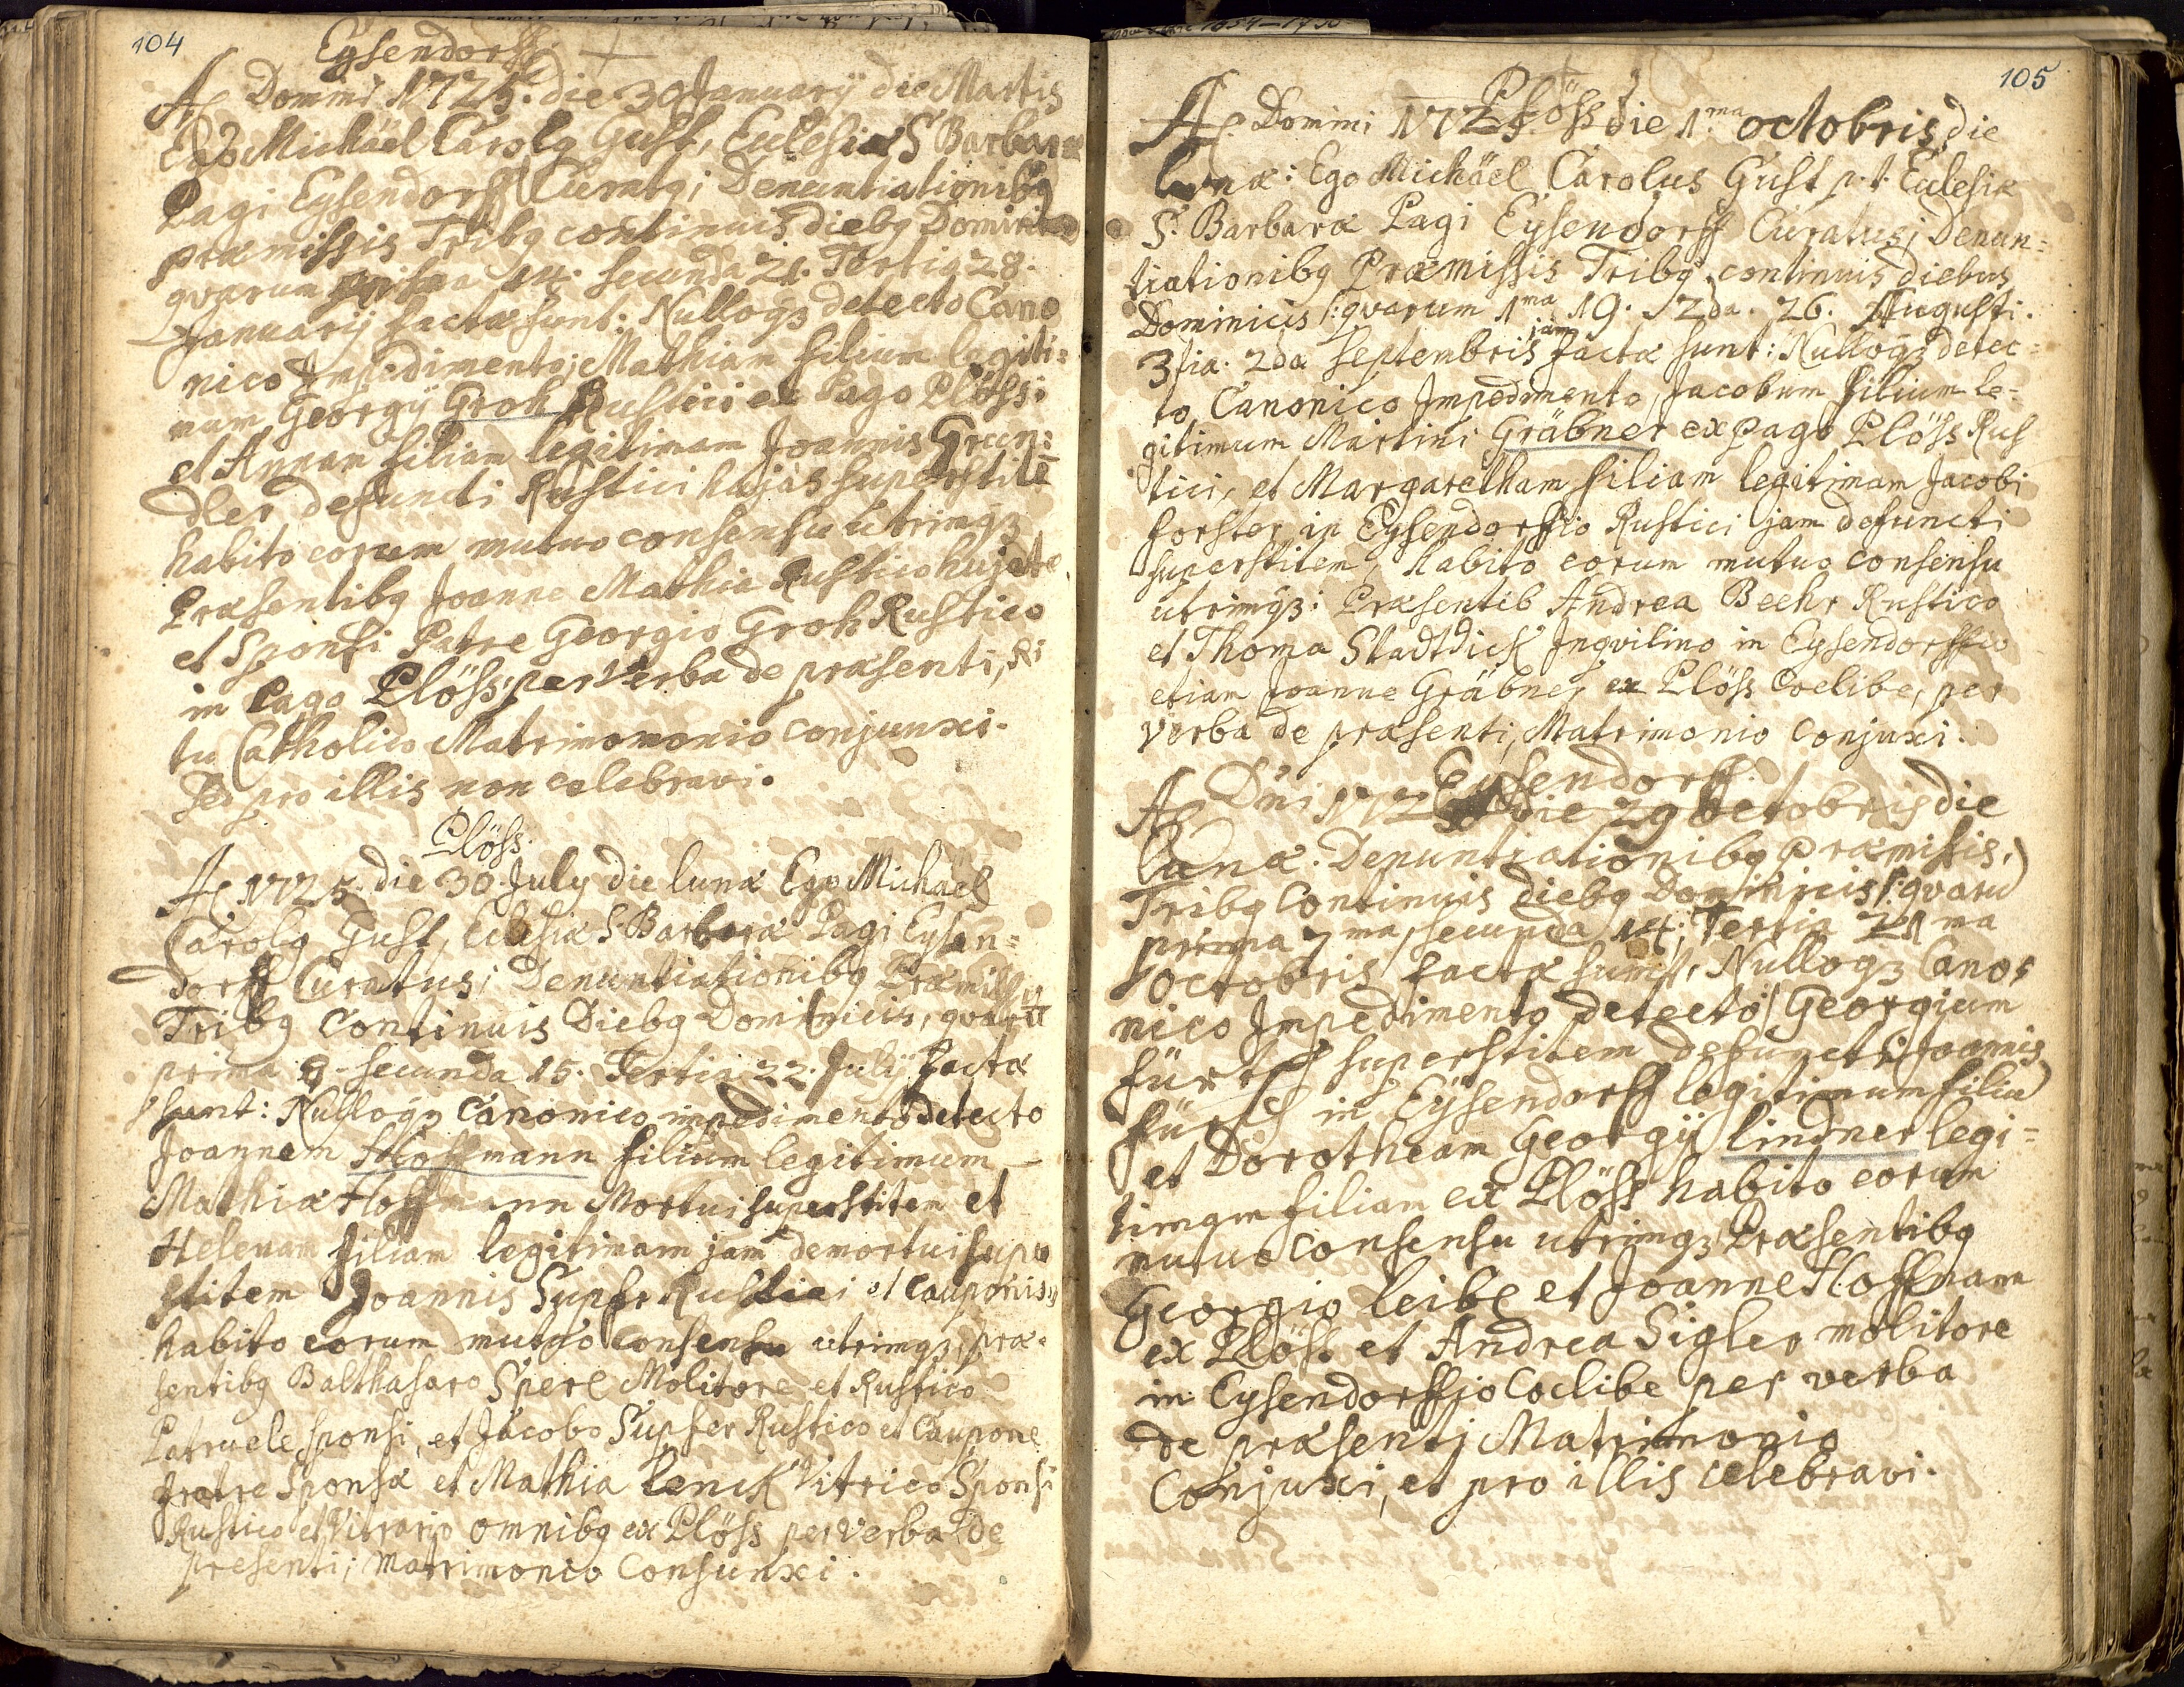 104
Eysendorff
A Domini 1725. die 30 January die Martis
Ego Michäel Carolg Gust, Eclesiæ S Barbaræ
Pagi Eysendorff Curatg; Denuntiationibg
præmissis Tribg continuis diebg Dominicis
qvarum prima 14. secunda 21. Tertia 28.
January factæ sunt: Nullogz detecto Cano
nico Impedimento; Mathiam filium legiti=
mum Georgij Groh Rustici ex Pago Plöss:
et Annam filiam legitimam Joannis Grün=
dler defuncti Rustici hujas superstitē
habito eorum mutuo consensu utrimqz
Præsentibg Joanne Mathia Rustico hujate
et Sponsi Patre Georgio Groh Rustico
in Pago Plöss; per Verba de præsenti, Ri
tu Catholico Matrimomonio conjunxi.
Sed pro illis non celebravi.
Plöss.
A 1725. die 30 July die lunæ Ego Michäel
Carolg Gust, Eclesiæ S. Barbaræ Pagi Eysen=
dorff Curatus; Denuntiationibg Præmissis
Tribg Continuis Diebg Dominicis, qvarū
prima 8. secunda 15. Tertia 22. July factæ
sunt: Nullogz Canonico impedimento detecto
Joannem Hoffmann filium legitimum
Mathiæ Hoffmann Mortui superstitem et
Helenam filiam legitimam jam demortui supe
stitem Joannis Supfer Rustici et Cauponis,
habito eorum mutuo Consensu utrimqz, præ=
sentibg Balthasaro Sperl Molitore et Rustico
Patruele sponsi, et Jacobo Supfer Rustico et Caupone
fratre Sponsæ et Mathia lenck Vitrico Sponsi
Rustico et Vitrario omnibg ex Plöss per verba de
presenti; Matrimonio Consunxi.
105
Plöss
A Domini 1725 die 1.ma octobris, die
lunæ: Ego Michäel Carolus Gust p.t. Eclesiæ
S. Barbaræ Pagi Eysendorff Curatus; Denun=
tiationibg Præmissis Tribg continuis diebus
Dominicis /: qvarum 1ma 19. 2da. 26. Augusti.
3tia. 2da Septembris jam factæ sunt: Nullogz detec=
to Canonico Impedimento, Jacobum filium le=
gitimum Martini Gräbner ex pago Plöss Rus
tici, et Margaretham filiam legitimam Jacobi
forster in Eysendorffio Rustici jam defuncti
superstitem, habito eorum mutuo consensu
utrimqz: Præsentib Andrea Beehr Rustico
et Thoma Stadtdick Inqvilino in Eysendorffio
etiam Joanne Gräbner ex Plöss Coelibe, per
verba de præsenti, Matrimonio Conjuxi.
Eysendorff.
A Dni 172 die 29 octobris die
lunæ. Denuntiationibg præmissis,
Tribg Continuis diebg Dominicis /: qvarū
prima 7ma, secunda 14; Tertia 21ma
octobris factæ sunt, Nullogz Cano=
nico Impedimento detecto / Georgium
fürtsch superstitem defuncti Joannis
fürtsch in Eysendorff legitimum filiū
et Dorotheam Georgij lindner legi=
timam filiam ex Plöss habito eorum
mutuo Consensu utrimqz Præsentibg
Georgio leibl et Joanne Hoffmann
ex Plöss et Andrea Sigler molitore
in Eysendorffjo Coelibe per verba
de præsentj Matrimonio
Conjuxi, et pro illis celebravi.